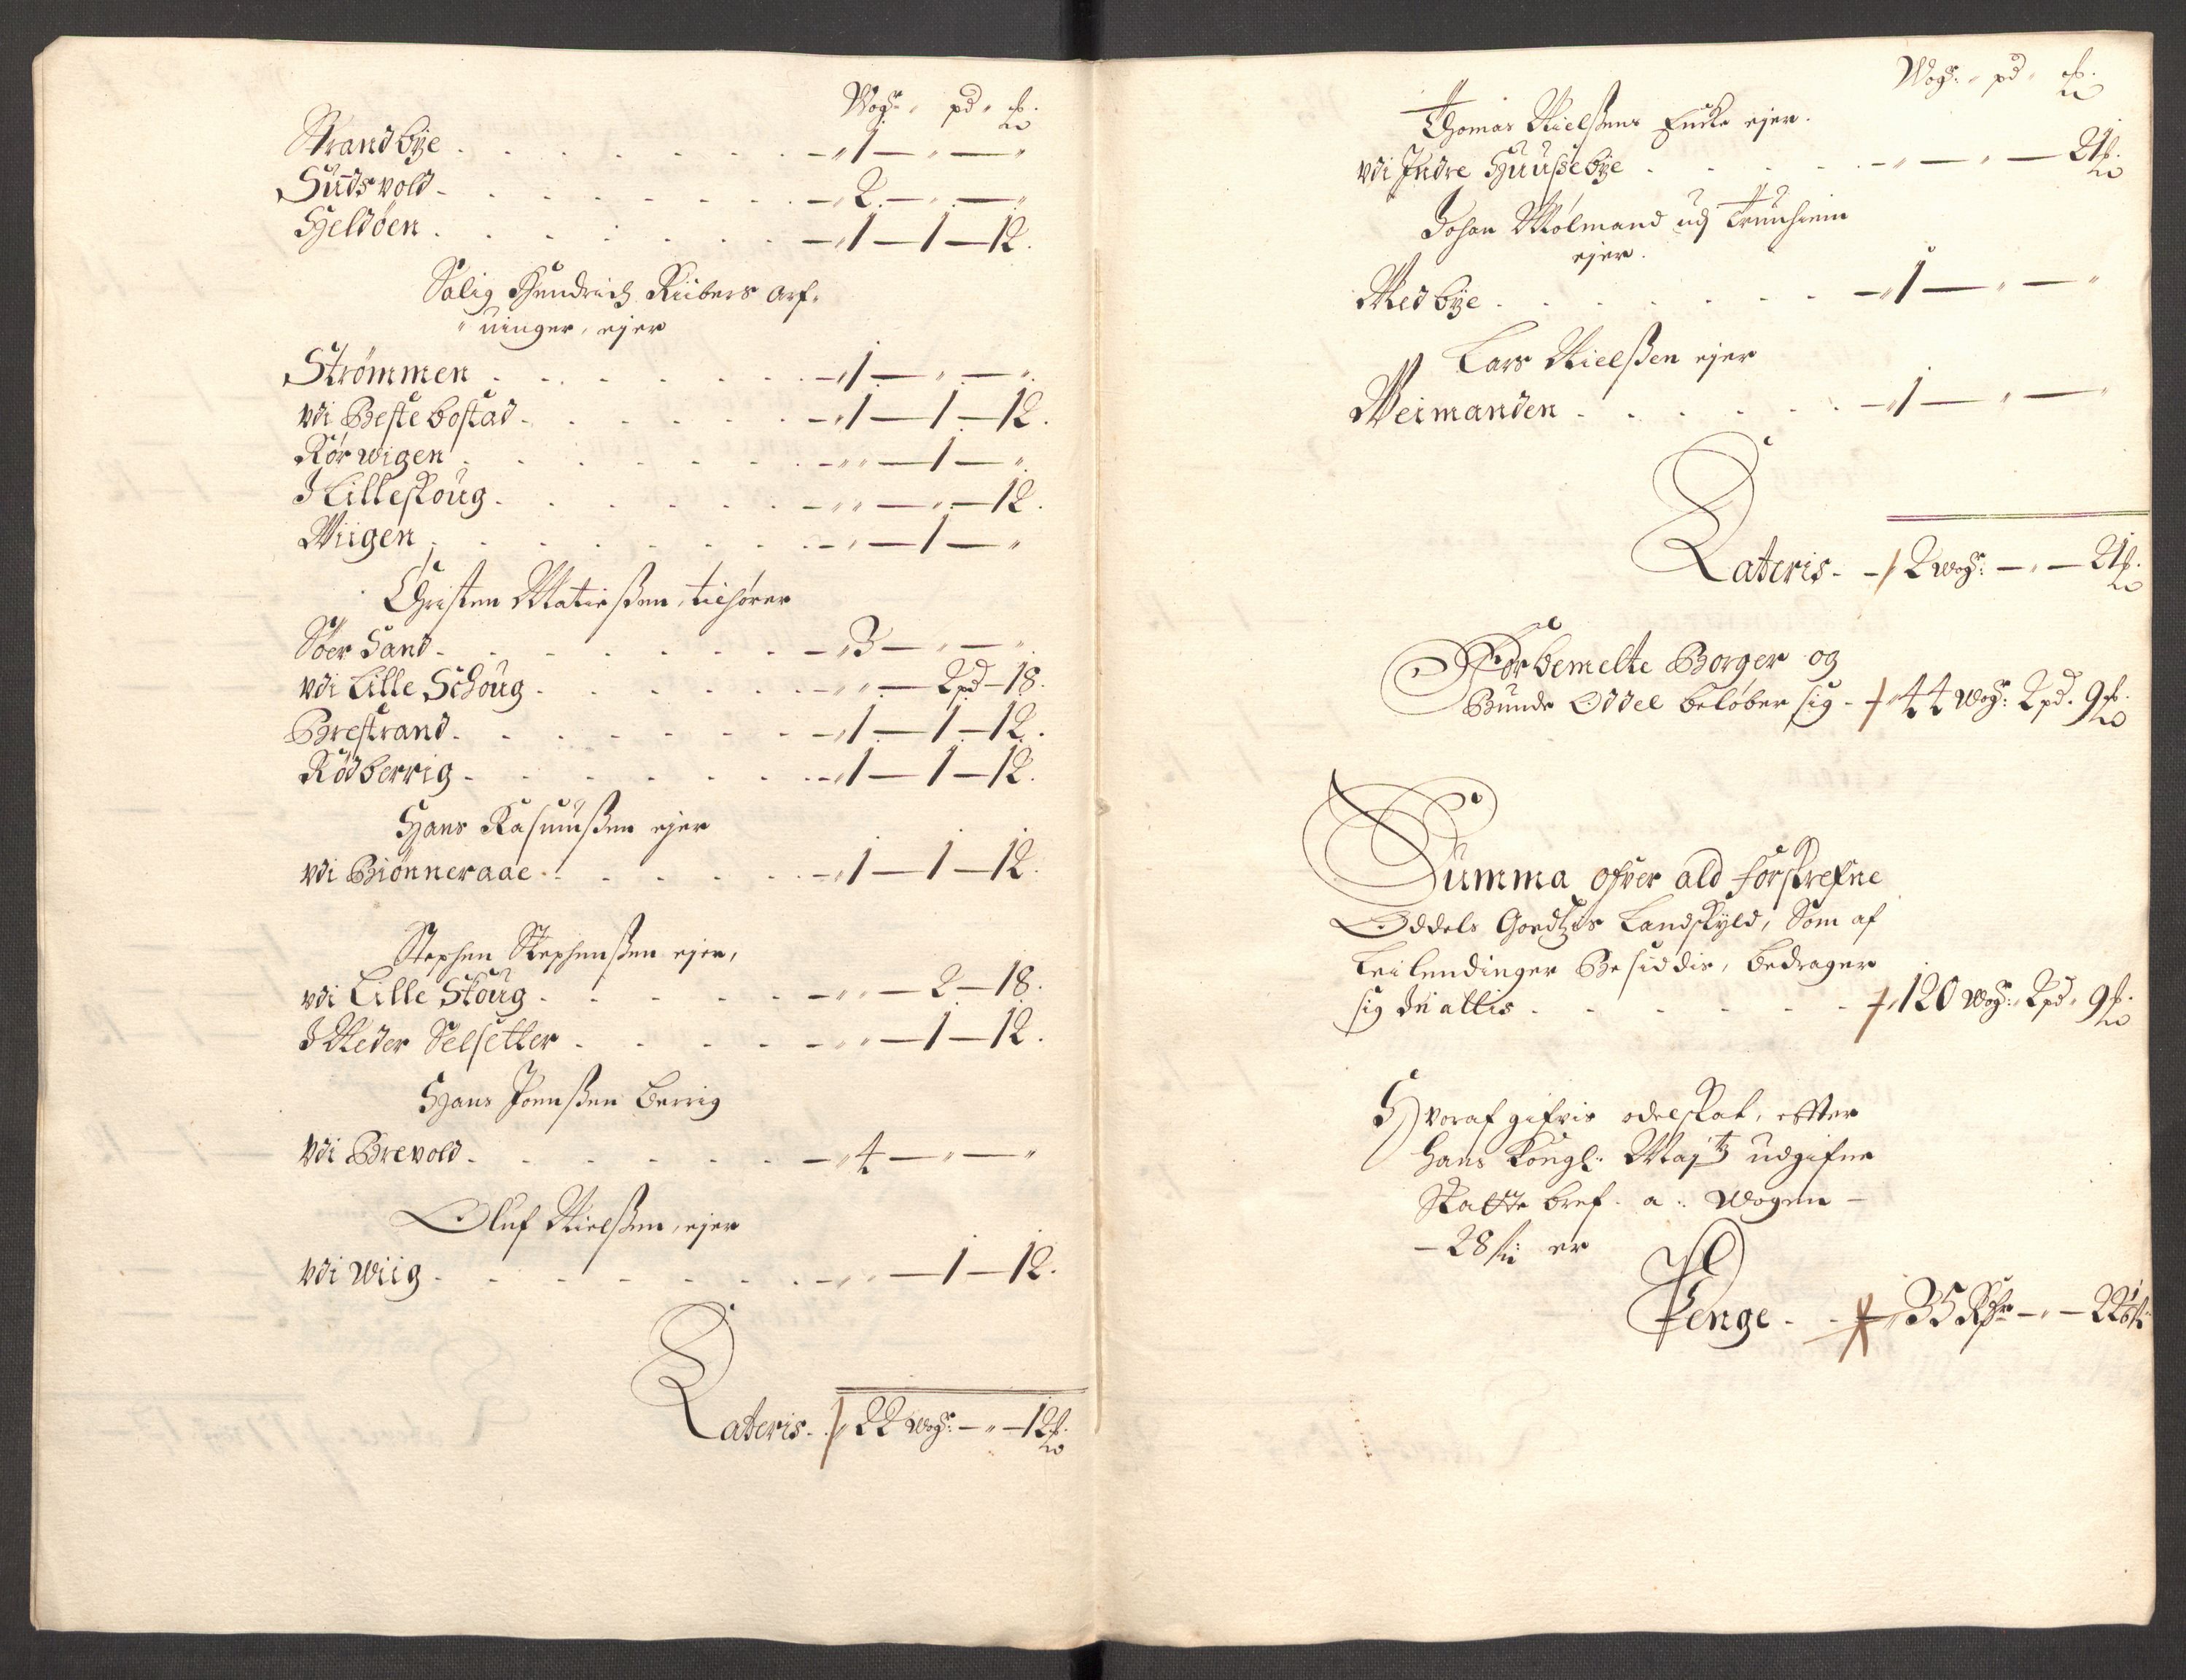 Wogr: " pd " ℔.
Strandbÿe . . . . . . . - " 1 — " — "
Sudsvold - . . . . . . - " 2 — " — "
Hieldøen . . . . . . . - " 1 — 1 — 12.
Salig Hendrich Riibers arf-
" uinger, ejer
Strømmen . . . . . . . - " 1 — " — "
vdi Bestebostad - . . . . . - " 1 — 1 — 12.
Rørwigen . . . . . . . - " " — 1 — "
J Lilleskoug . . . . . . - " " — " — 12.
Wiigen . . . . . . . - " — 1 — "
Christen Matiesßen, tilhører
Søer Sand - . . . . . . - " 3 — " — "
vdi Lille Schoug . . . . . . - " " — 2 pd — 18.
Brestrand . . . . . . . - " 1 — 1 — 12.
Rødberrig - . . . . . . - " 1 — 1 — 12.
Hans Rasmusßen ejer
vdi Biønneraae . . . . . . - " 1 — 1 — 12.
Stephen Stephensßen ejer,
vdi Lille Skoug . . . . . . - " " — 2 — 18.
J Neder Selsetter . . . . . - " " — 1 — 12.
Hans Joensßen Berrig
vdi Brevold - . . . . . . - " 4 — " — "
Oluf Nielsßen, ejer
vdi Wiig - . . . . . . - " " — 1 — 12.
Lateris - " 22 Wogr: — " — 12 ℔.
Wogr: " pd " ℔.
Thomas Nielsßens Encke ejer.
vdi Indre Huusebÿe . . . . . - " — " — 21 ℔.
Johan Mølmand udj Trunhiem
ejer.
Medbÿe . . . . . . . - " 1 — " — "
Lars Nielsßen ejer
Weimanden . . . . . . - " 1 — " — "
Lateris - - 2 Wogr: — " — 21 ℔.
Forbemelte Borger og
Bunde Oddel beløber sig - " 44 Wogr: 2 pd. 9 ℔.
Summa ofver ald forskrefne
Oddels Goedtzis Landskyld, Som af
Leilendinger Besiddis, bedrager
sig du allis . . . . . . - " 120 Wogr: 2 pd " 9 ℔.
Hvoraf gifvis odelskat, efter
Hans Kongl: Maÿtz udgifne
Skatte bref. a. Wogen —
— 28 s: er
Penge - . - " 35 Rdr — " — 22½ s: